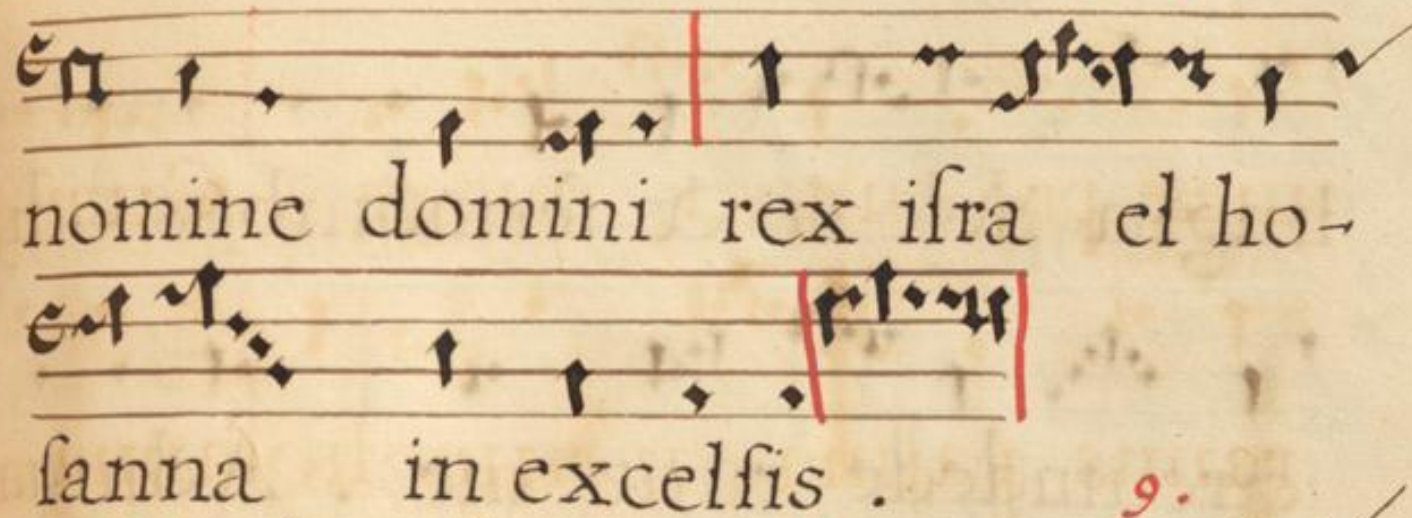 nomine domini rex iſra el ho-
ſanna in excelſis . 9.